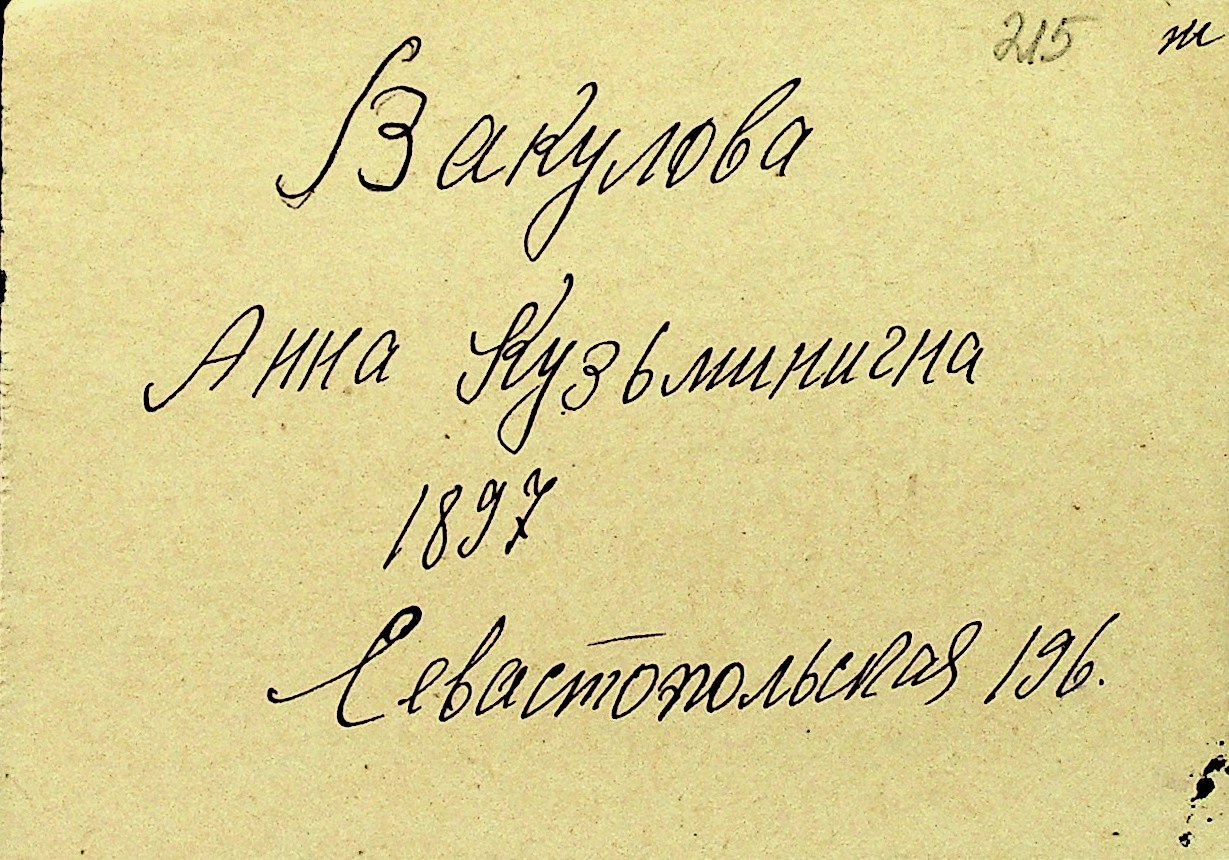 215 ж
Вакулова
Анна Кузьминична
1897
Севастопольская 196.